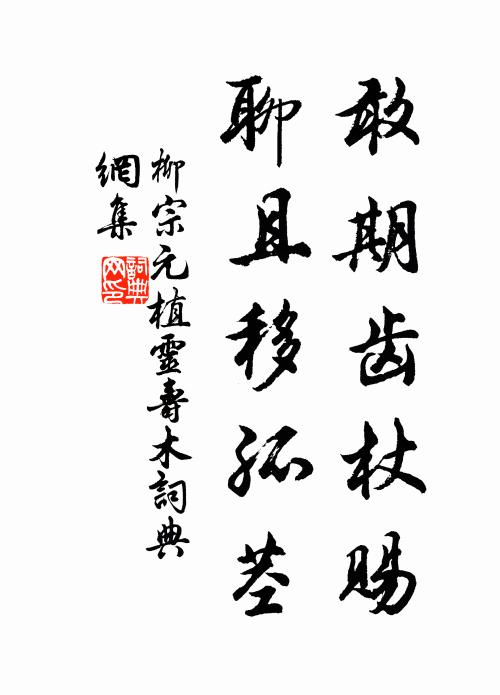 敢期齿杖赐
聊且移孤茎
柳宗元植靈壽木詞典
網集
詞典
网印